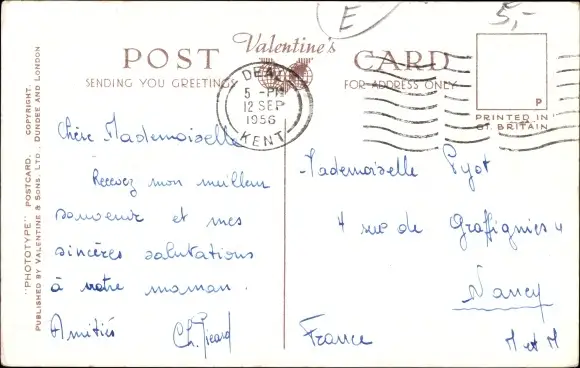 E
5,-
POST Valentine's CARD
SENDING YOU GREETINGS
FOR ADDRESS ONLY
P
PRINTED IN
GT. BRITAIN
DEAL
5 - PM
12 SEP
1956
KENT
"PHOTOTYPE" POSTCARD. COPYRIGHT.
PUBLISHED BY VALENTINE & SONS, LTD., DUNDEE AND LONDON
Chère Mademoiselle
Recevez mon meilleur
souvenir et mes
sincères salutations
à votre maman.
Amitiés
Ch. Picard
Mademoiselle Pyot
4 rue de Graffignies
Nancy
France M et M